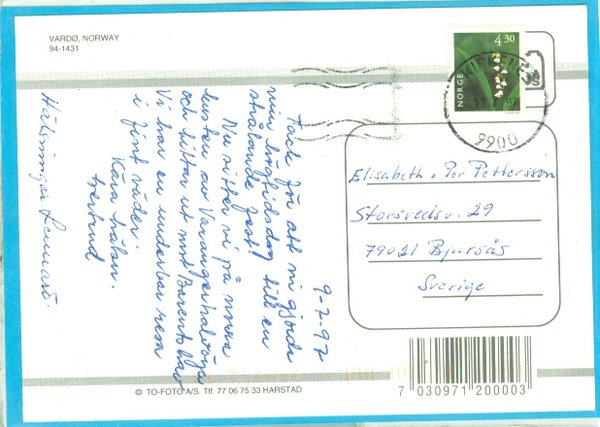 VARDØ, NORWAY
94-1431
NORGE
4 30
KIRKENES
11.7.97
9900
9-7-97
Tack för att ni gjorde
min högtidsdag till en
strålande fest!
Nu sitter vi på norra
kusten av Varangerhalvöya
och tittar ut mot Barents hav
Vi har en underbar resa
i fint väder.
Våra hälsn.
Gertrud
Hälsningar Lennart.
Elisabeth o Per Pettersson
Storsvedsv. 29
79021 Bjursås
Sverige
© TO-FOTO A/S. Tlf. 77 06 75 33 HARSTAD
7 030971 200003